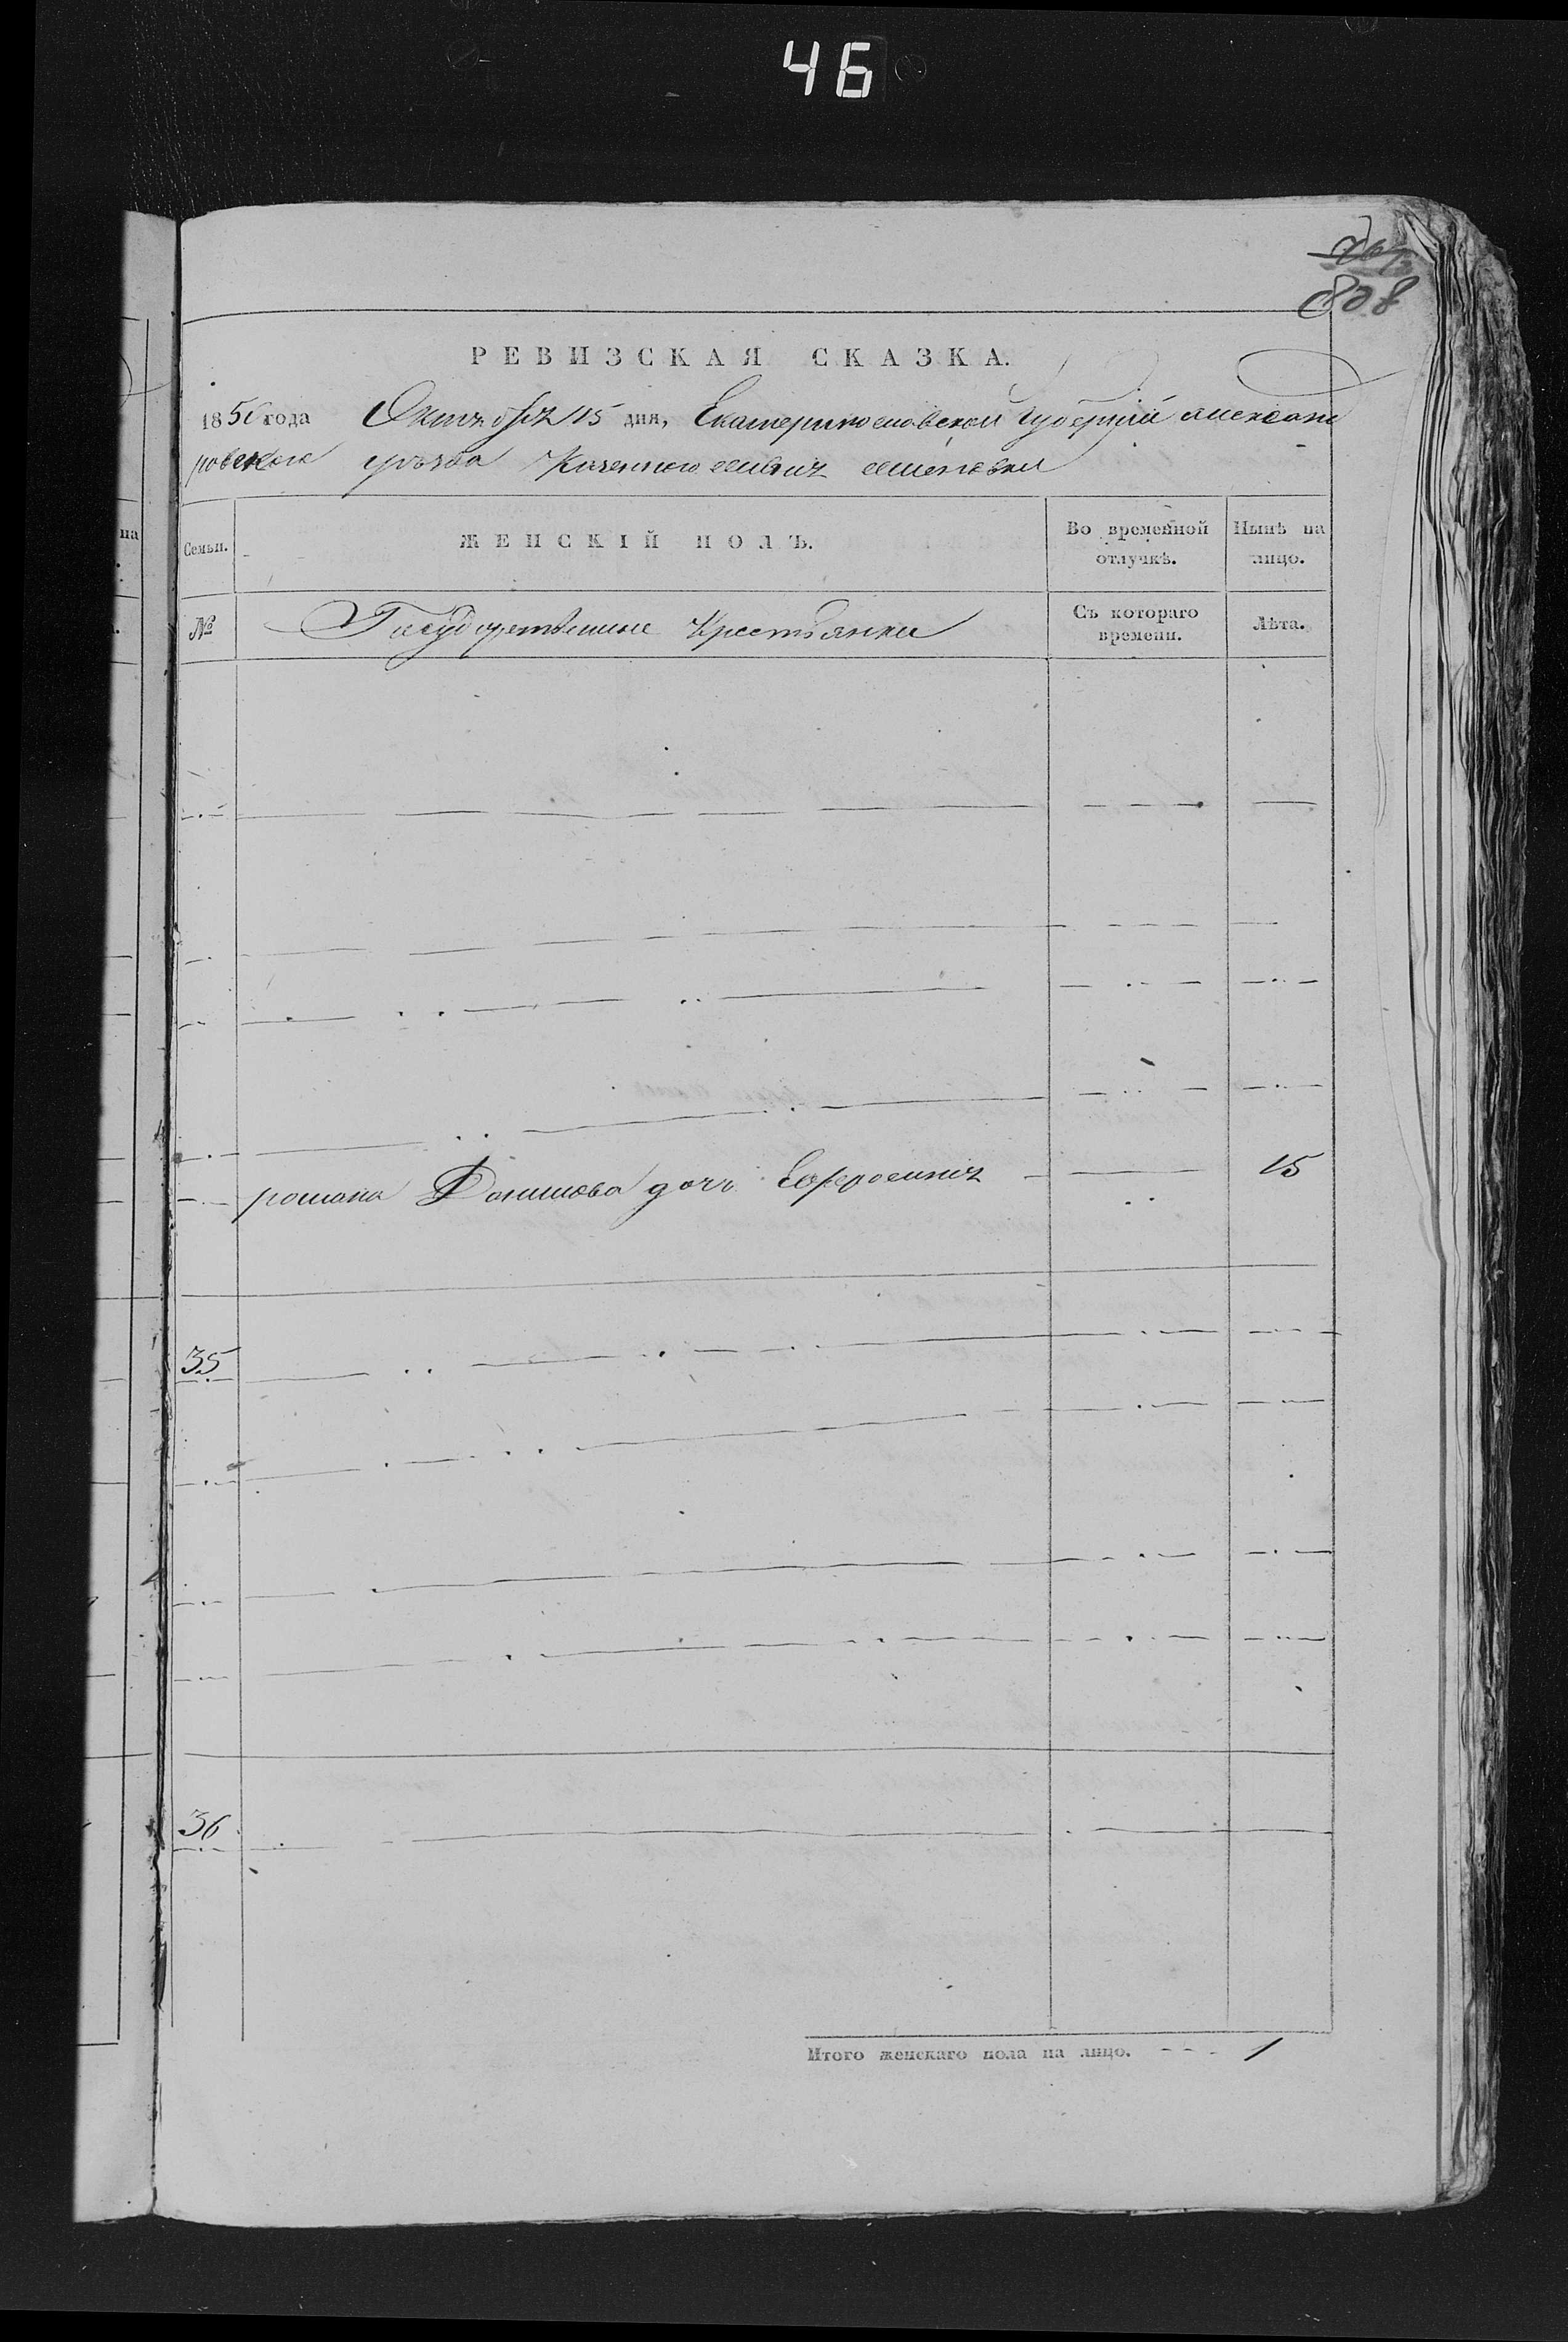 46
808
РЕВИЗСКАЯ СКАЗКА.
1850 года Октября 15 дня, Екатеринославской Губернии Александ
ровского уезда Казенного селения
на
Семьи. ЖЕНСКІЙ ПОЛЪ. Во временной отлучкѣ. Нынѣ на лицо.
№ Государственные Крестьянки Съ котораго времени. Лѣта.
романа дочь Ефросиния 15
35
36
Итого женскаго пола на лицо. 1